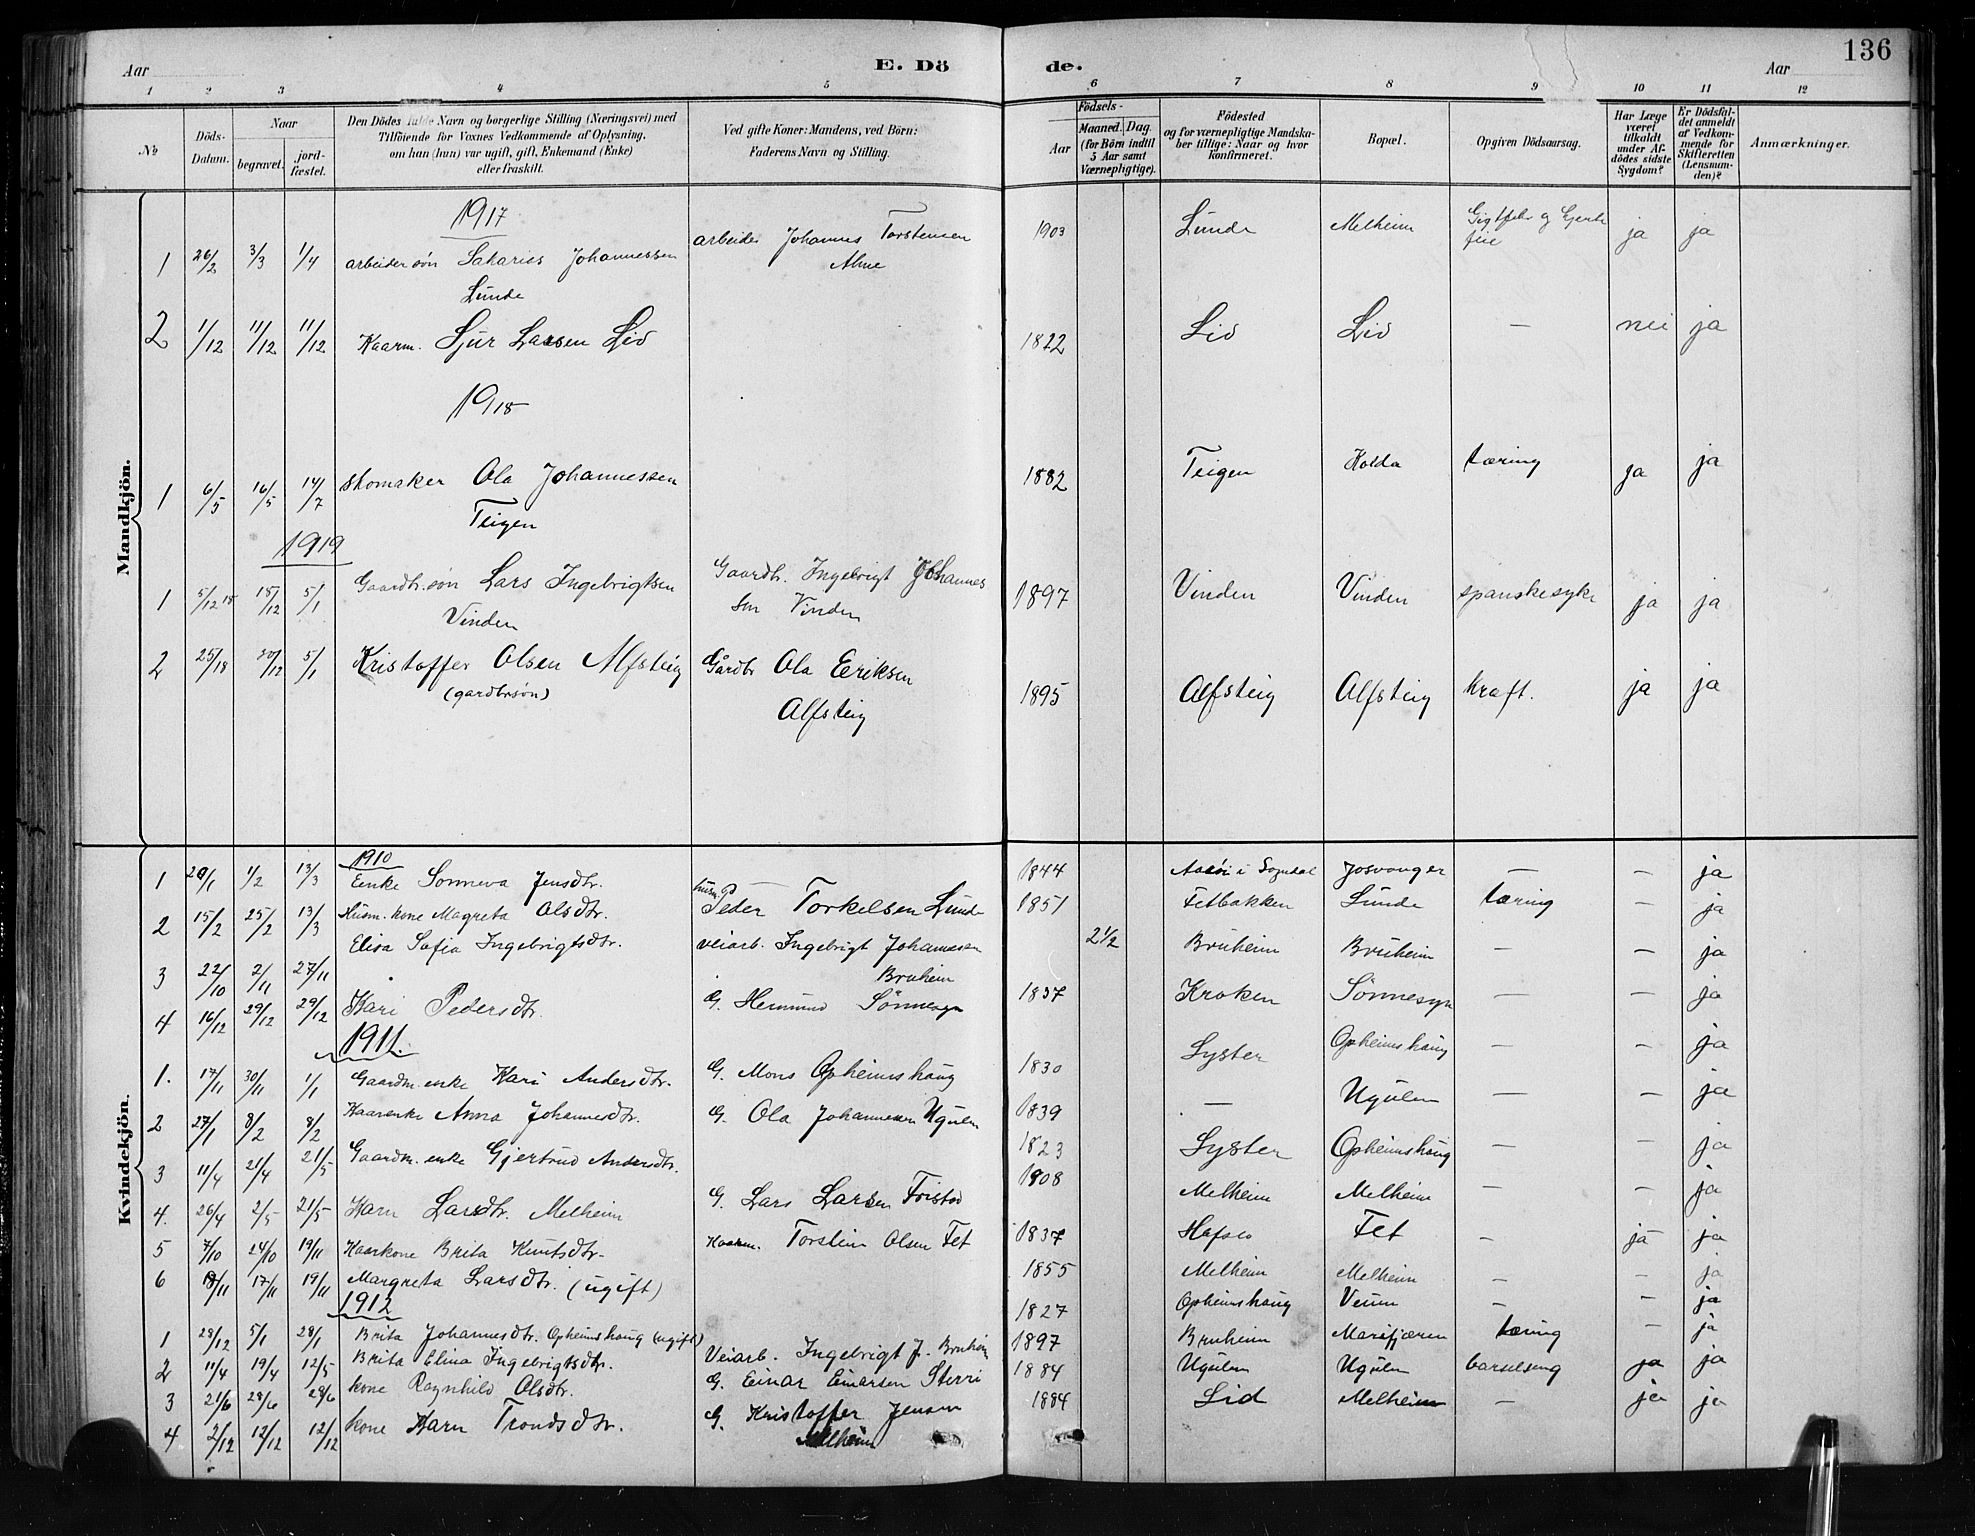 136
Aar E. Dö de. Aar
1 2 3 4 5 6 7 8 9 10 11 12
№
Döds-Datum.
Naar
begravet. jord-fæstet.
Den Dödes fulde Navn og borgerlige Stilling (Næringsvei) med
Tilföiende for Voxnes Vedkommende af Oplysning,
om han (hun) var ugift, gift, Enkemand (Enke)
eller fraskilt.
Ved gifte Koner: Mandens, ved Börn:
Faderens Navn og Stilling.
Födsels-
Aar
Maaned. Dag
(for Börn indtil
5 Aar samt
Værnepligtige).
Födested
og for værnepligtige Mandska-
ber tillige: Naar og hvor
konfirmeret.
Bopæl.
Opgiven Dödsaarsag.
Har Læge
været
tilkaldt
under Af-
dödes sidste
Sygdom?
Er Dödsfal-
det anmeldt
af Vedkom-
mende for
Skifteretten
(Lensman-
den)?
Anmærkninger.
Mandkjön.
1917
1 26/2 3/3 1/4 arbeider søn Sakarias Johannessen Lunde arbeider Johannes Torstensen 1903 Lunde Melheim ja ja
2 1/12 11/12 11/12 Kaarm. Sjur Larsen Lid 1822 Lid Lid — nei ja
1918
1 6/5 16/5 14/7 skomaker Ola Johannessen Teigen 1882 Teigen Kolda tæring ja ja
1919
1 5/12 18 18/12 5/1 Gaardbr. søn Lars Ingebrigtsen Vinden Gaardbr. Ingebrigt Johannes sen Vinden 1897 Vinden Vinden spanskesyke ja ja
2 25/18 30/12 5/1 Kristoffer Olsen Alfsteig (gardbrsøn) Gårdbr Ola Eriksen Alfsteig 1895 Alfsteig Alfsteig kraft. ja ja
Kvindekjön.
1910
1 29/1 1/2 13/3 Enke Sonneva Jensdtr. — 1844 i Sogndal Josvanger — — ja
2 15/2 25/2 13/3 Husm. kone Magreta Olsdtr. husm. Peder Torkelsen Lunde 1851 Fetbakken Lunde tæring — ja
3 22/10 2/11 27/11 Elisa Sofia Ingebrigtsdtr. veiarb. Ingebrigt Johannesen Bruheim 2 1/2 Bruheim Bruheim — — ja
4 16/12 29/12 29/12 Kari Pedersdtr. G. Hermund Sønnesyn 1837 Kroken Sønnesyn — — ja
1911.
1. 17/11 30/11 1/1 Gaardm. enke Kari Andersdtr. G. Mons Opheimshaug 1830 Lyster Opheimshaug — — ja
2 27/1 8/2 8/2 Kaarenke Anna Johannesdtr. G. Ola Johannesen Ugulen 1839 — Ugulen — — ja
3 11/4 21/4 21/5 Gaardm. enke Gjertrud Andersdtr. 1823 Lyster Opheimshaug — ja
4. 26/4 2/5 21/5 Karn Larsdtr. Melheim G. Lars Larsen Fristad 1908 Melheim Melheim — — ja
5 7/10 24/10 19/11 Kaarkone Brita Knutsdtr. Kaarm. Torstein Olsen Fet 1837 Hafslo Fet — ja ja
6 8/11 17/11 19/11 Margreta Larsdtr. (ugift) 1855 Melheim Melheim — — ja
1912
1 28/12 5/1 28/1 Brita Johannesdtr. Opheimshaug (ugift) 1827 Opheimshaug Veum — — ja
2 11/4 19/4 12/5 Brita Elina Ingebrigtsdtr. Veiarb. Ingebrigt J. Bruheim 1897 Bruheim Marifjæren tæring — ja
3 21/6 28/6 28/6 kone Ragnhild Olsdtr. G. Einar Einarsen Sterri 1884 Ugulen Ugulen barselseng ja ja
4 2/12 12/12 12/12 kone Karn Trondsdtr. G. Kristoffer Jensen Melheim 1884 Lid Melheim — ja ja